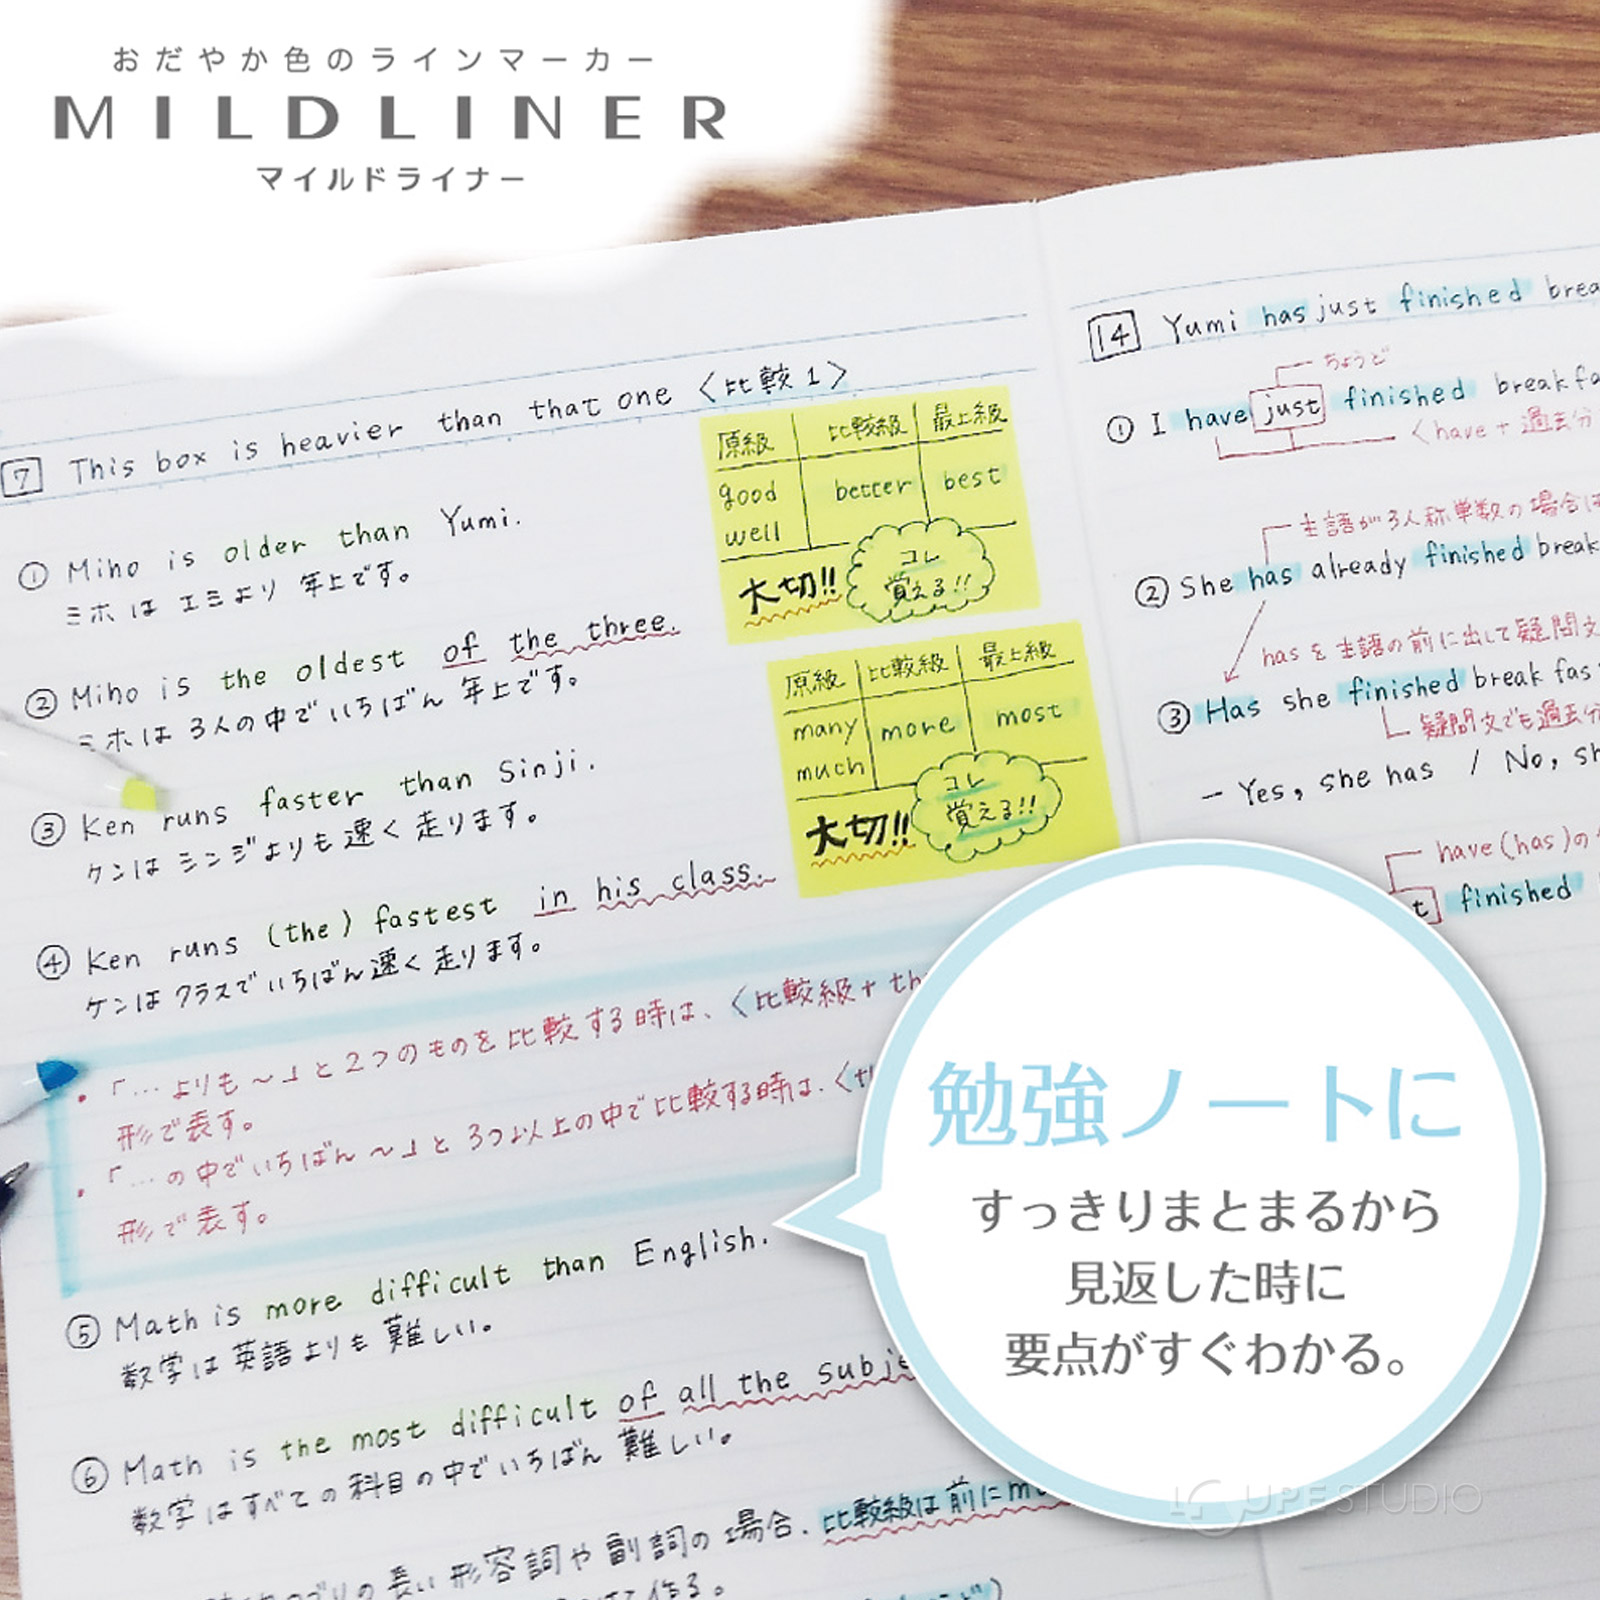 おだやか色のラインマーカー
MILDLINER
マイルドライナー
7 This box is heavier than that one 〈比較1〉
① Miho is older than Yumi.
ミホは エミより 年上です。
② Miho is the oldest of the three.
ミホは 3人の中でいちばん 年上です。
③ Ken runs faster than Sinji.
ケンは シンジよりも 速く 走ります。
④ Ken runs (the) fastest in his class.
ケンは クラスでいちばん速く 走ります。
・「…よりも〜」と2つのものを比較する時は、〈比較級+
形で表す。
・「…の中でいちばん〜」と3つ以上の中で比較する時は、
形で表す。
⑤ Math is more difficult than English.
数学は 英語よりも 難しい。
⑥ Math is the most difficult of all the
数学は すべての 科目の中でいちばん 難しい。
長い 形容詞や 副詞の 場合、比較級は前に
原級 比較級 最上級
good better best
well
大切!! コレ
覚える!!
原級 比較級 最上級
many more most
much
コレ
大切!! 覚える!!
14 Yumi has just finished
ちょうど
① I have just finished
〈have+過去分
主語が3人称単数の場合は
② She has already finished
hasを主語の前に出して疑問文
③ Has she finished
疑問文でも過去分
– Yes, she has / No,
have(has)の
finished
勉強ノートに
すっきりまとまるから
見返した時に
要点がすぐわかる。
LOUPE STUDIO